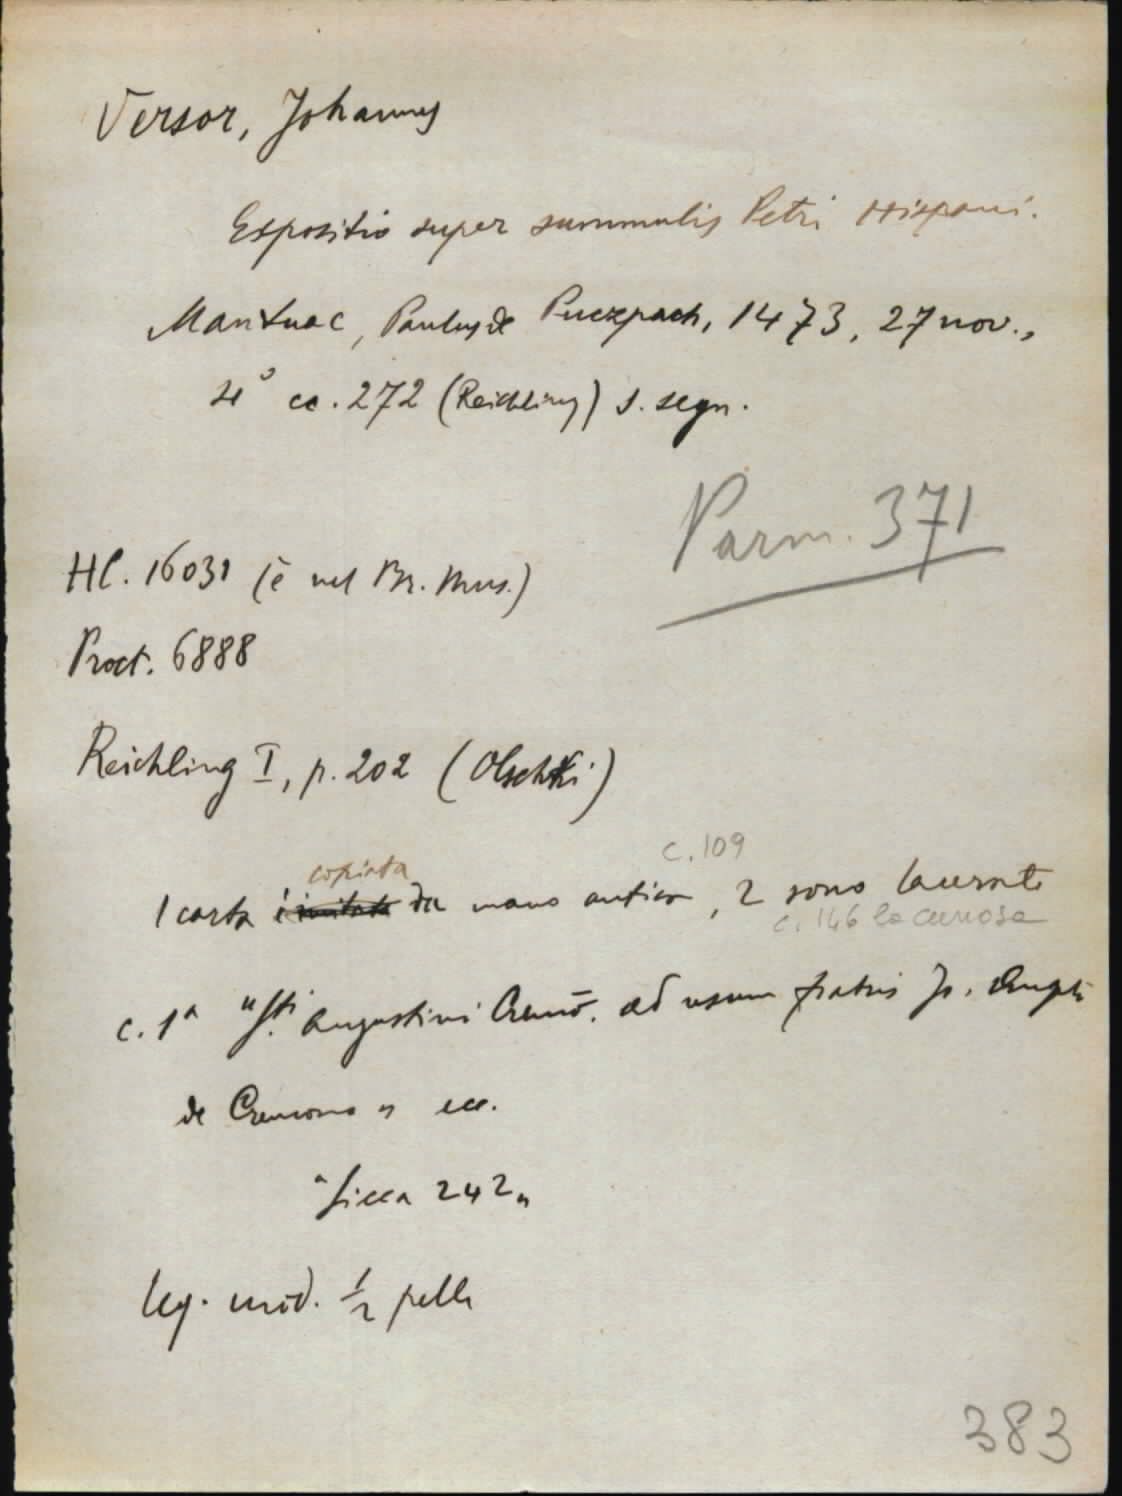 Versor, Johannes
Expositio super summulis Petri Hispani.
Mantuae, Paulus de Puczpach, 1473, 27 nov.,
4° cc. 272 (Reichling) s. segn.
Parm. 371
HC. 16031 (è nel Br. Mus.)
Proct. 6888
Reichling I, p. 202 (Olschki)
copiata c. 109
1 carta è imitata da mano antica, 2 sono lacerate
c. 146 lacunosa
c. 1ª "S.ti Augustini Cremō. ad usum fratris Jo.
de Cremona" ecc.
"Sicca 242"
leg. mod. ½ pelle
383